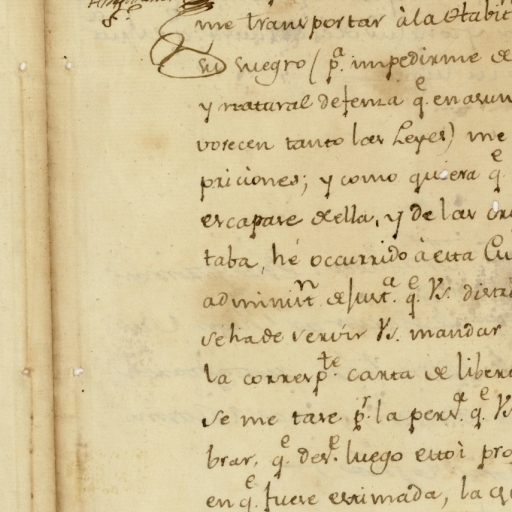 me transportar à la Habit
su suegro (p.ª impedirme de
y natural defensa q.e en asun
vorecen tanto las Leyes) me
priciones; y como quiera q.e
escapase de ella, y de las cru
taba, hé occurrido à esta Ciu
administ.n de just.a q.e Vs. distri
se ha de servir Vs. mandar
la corresp.te carta de libert
se me tase p.r la pers.a q.e Vs
brar, q.e desde luego estoi pro
en q.e fuere estimada, la q